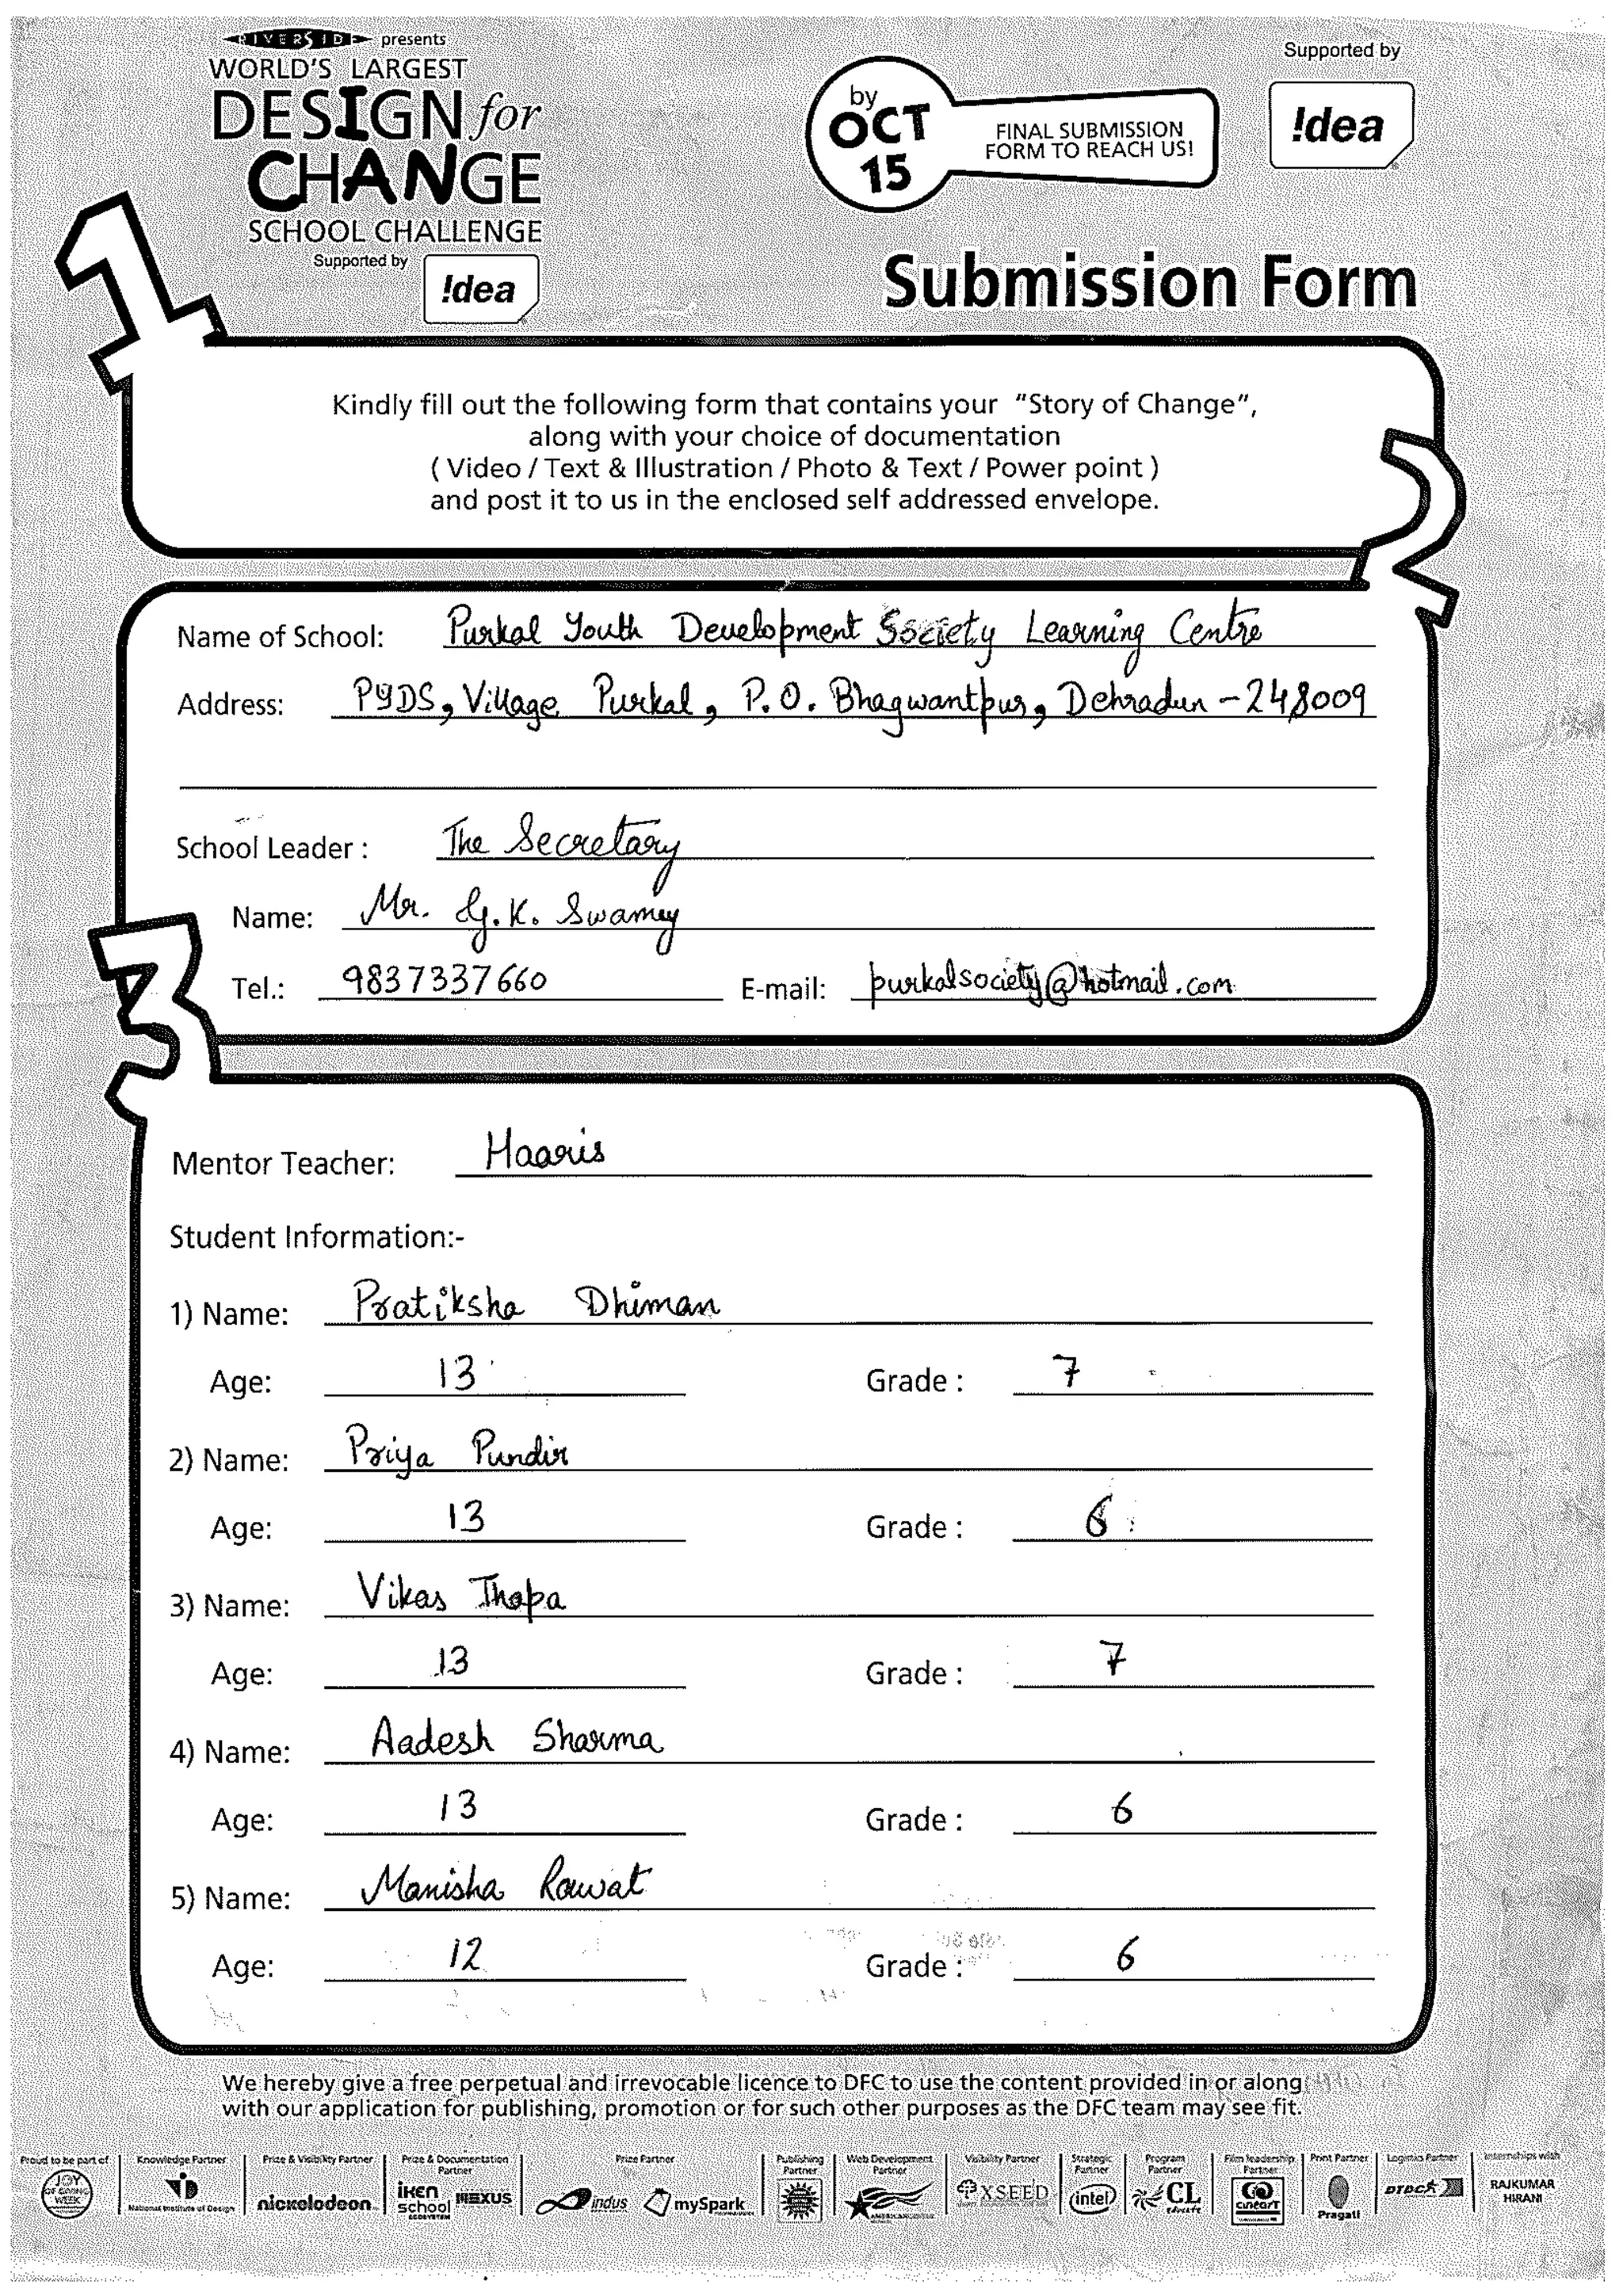 RIVERSIDE presents
WORLD'S LARGEST
DESIGN for
CHANGE
SCHOOL CHALLENGE
Supported by
!dea
by
OCT
15
FINAL SUBMISSION
FORM TO REACH US!
Supported by
!dea
Submission Form
1
Kindly fill out the following form that contains your "Story of Change",
along with your choice of documentation
( Video / Text & Illustration / Photo & Text / Power point )
and post it to us in the enclosed self addressed envelope.
2
Name of School: Purkal Youth Development Society Learning Centre
Address: PYDS, Village Purkal, P.O. Bhagwantpur, Dehradun - 248009
School Leader : The Secretary
Name: Mr. G.K. Swamy
Tel.: 9837337660 E-mail: purkalsociety@hotmail.com
3
Mentor Teacher: Haaris
Student Information:-
1) Name: Pratiksha Dhiman
Age: 13 Grade : 7
2) Name: Priya Pundir
Age: 13 Grade : 6
3) Name: Vikas Thapa
Age: 13 Grade : 7
4) Name: Aadesh Sharma
Age: 13 Grade : 6
5) Name: Manisha Rawat
Age: 12 Grade : 6
We hereby give a free perpetual and irrevocable licence to DFC to use the content provided in or along
with our application for publishing, promotion or for such other purposes as the DFC team may see fit.
Proud to be part of
JOY OF GIVING WEEK
Knowledge Partner
National Institute of Design
Prize & Visibility Partner
nickelodeon
Prize & Documentation Partner
iken school ECOSYSTEM NEXUS
Prize Partner
indus mySpark
Publishing Partner
Web Development Partner
Visibility Partner
XSEED
Strategic Partner
intel
Program Partner
CL educate
Film leadership Partner
cineart
Print Partner
Pragati
Logistics Partner
DTDC
Internships with
RAJKUMAR HIRANI